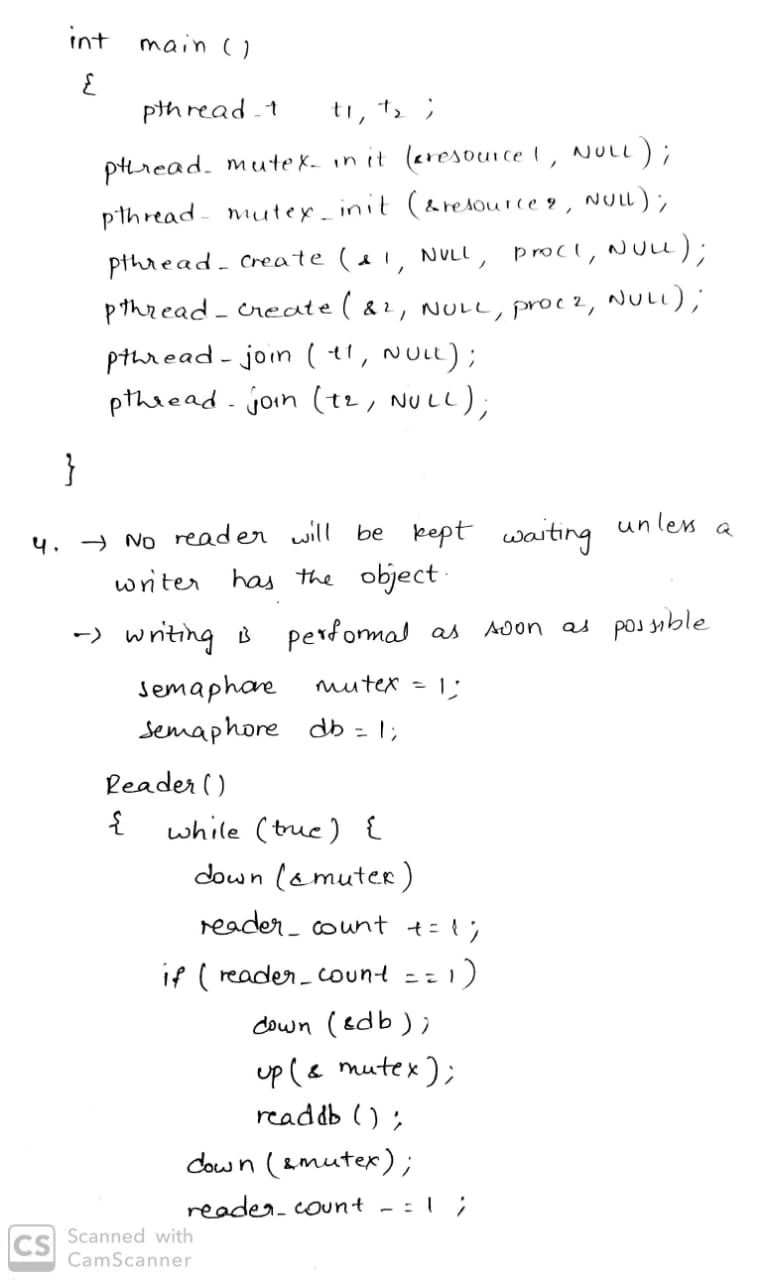 int main ()
{
pthread_t t1, t2 ;
pthread_mutex_init (&resource1, NULL);
pthread_mutex_init (&resource2, NULL);
pthread_create (&1, NULL, proc1, NULL);
pthread_create (&2, NULL, proc2, NULL);
pthread_join ( t1, NULL);
pthread_join (t2, NULL);
}
4. → No reader will be kept waiting unless a
writer has the object.
-> writing is performal as soon as possible
semaphore mutex = 1;
semaphore db = 1;
Reader()
{ while (true) {
down (&mutex)
reader_count += 1;
if ( reader_count == 1)
down (&db);
up(& mutex);
readdb ();
down (&mutex);
reader_count -= 1 ;
CS Scanned with
CamScanner